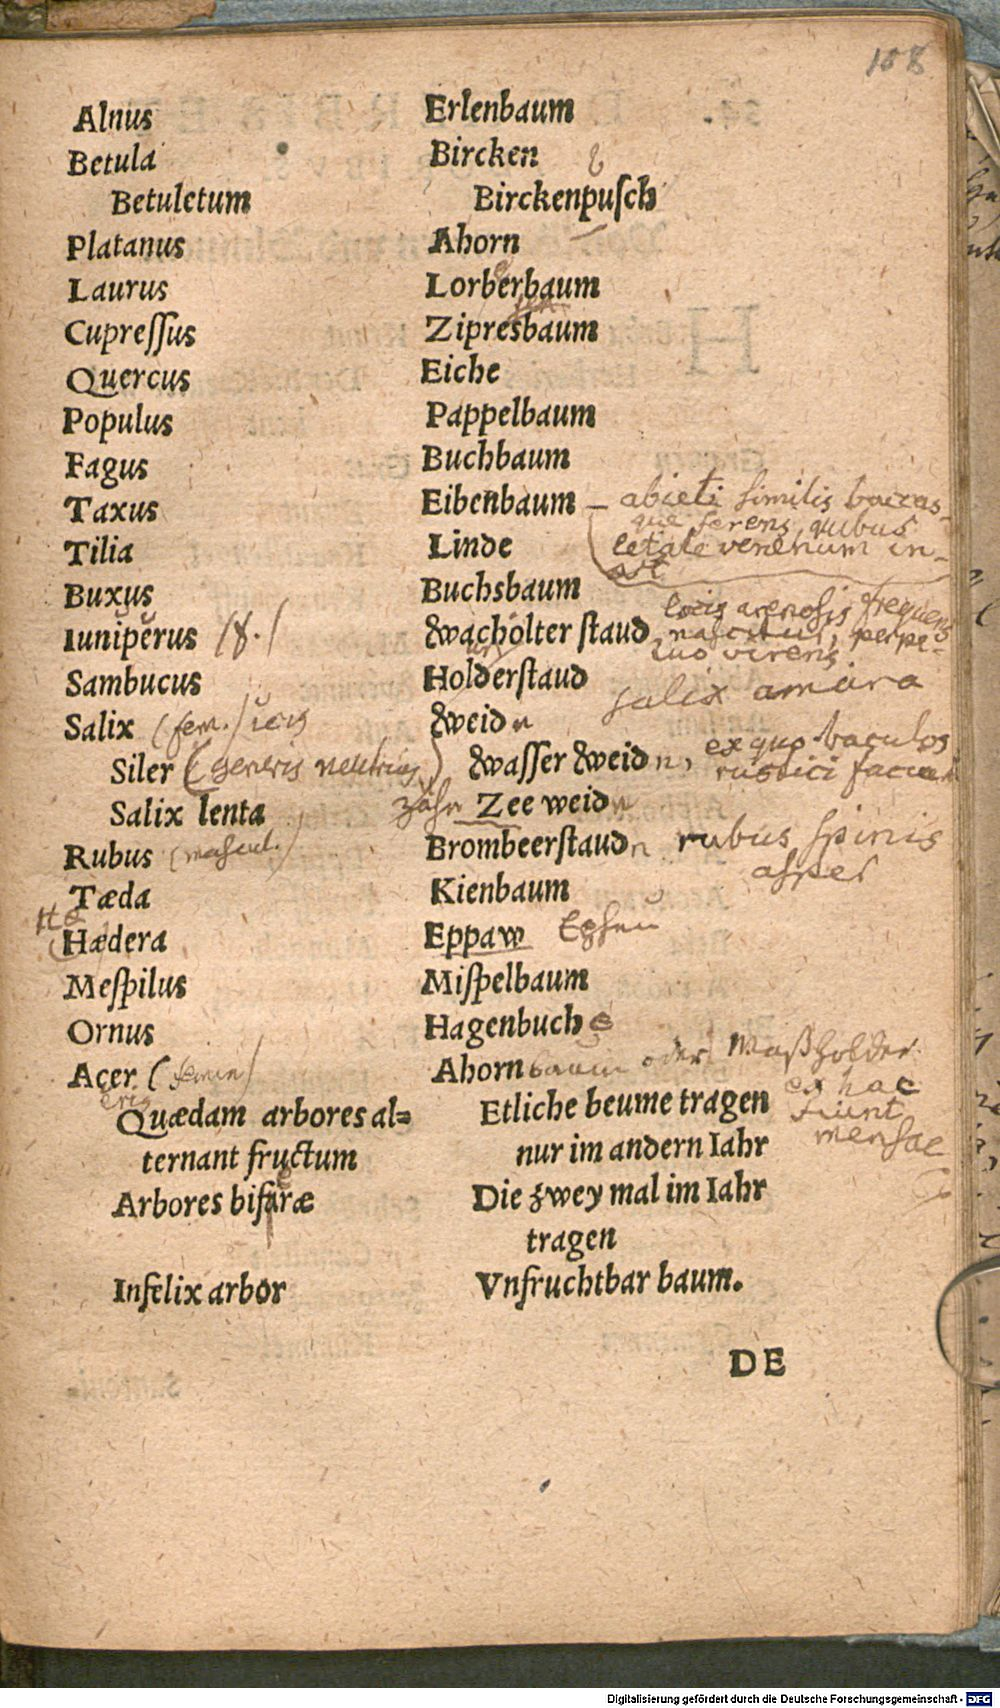 108
Alnus Erlenbaum
Betula Bircken
Betuletum Birckenpuſch
Platanus Ahorn
Laurus Lorberbaum
Cupreſſus Zipresbaum
Quercus Eiche
Populus Pappelbaum
Fagus Buchbaum
Taxus Eibenbaum – abieti similis baccas-
que ferens, quibus
Tilia Linde letale venenum in-
est
Buxus Buchsbaum
locis arenosis frequens
Iuniperus /8./ Wacholter ſtaud nascitur, perpe-
tuo virens
Sambucus Holderſtaud
salix amara
Salix (fem.) icis Weidn
Siler (generis neutrius) Waſſer Weidn, ex quo baculos
rustici faciunt
Salix lenta zähn Zee weidn
Rubus (mascul.) Brombeerſtaudn rubus spinis
asper
Tæda Kienbaum
He
Hædera Eppaw Epheu
Meſpilus Miſpelbaum
Ornus Hagenbuche
Acer (femin) Ahornbaum oder Maßholder
eris
ex hac
Quædam arbores al= Etliche beume tragen fiunt
mensae
ternant fructum nur im andern Iahr
Arbores bifaræ Die zwey mal im Iahr
tragen
Infelix arbor Vnfruchtbar baum.
DE
Digitalisierung gefördert durch die Deutsche Forschungsgemeinschaft - DFG